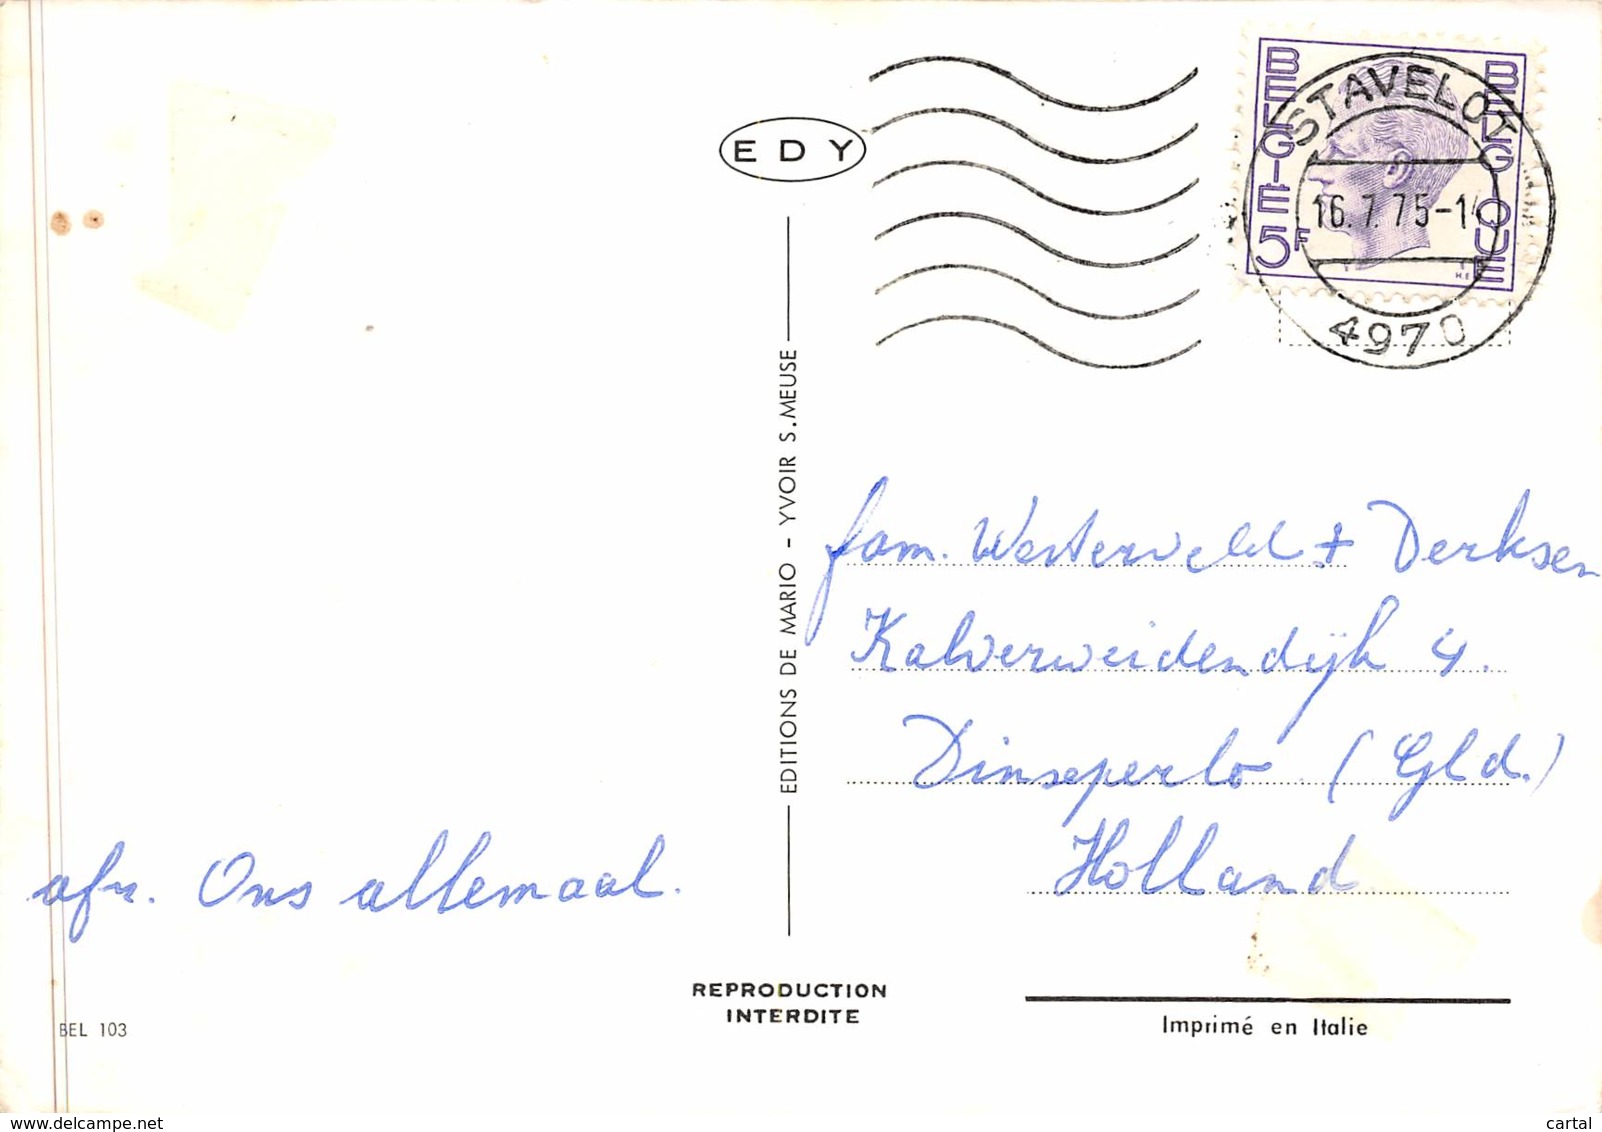 EDY
BELGIE 5F
BELGIQUE
H.E
STAVELOT
16.7.75-14
4970
EDITIONS DE MARIO - YVOIR S.MEUSE
fam. Westerveld + Derksen
Kalverweidendijk 4.
Dinxperlo. (Gld.)
Holland.
afz. Ons allemaal.
REPRODUCTION
INTERDITE
BEL 103
Imprimé en Italie
https://www.delcampe.net
cartal